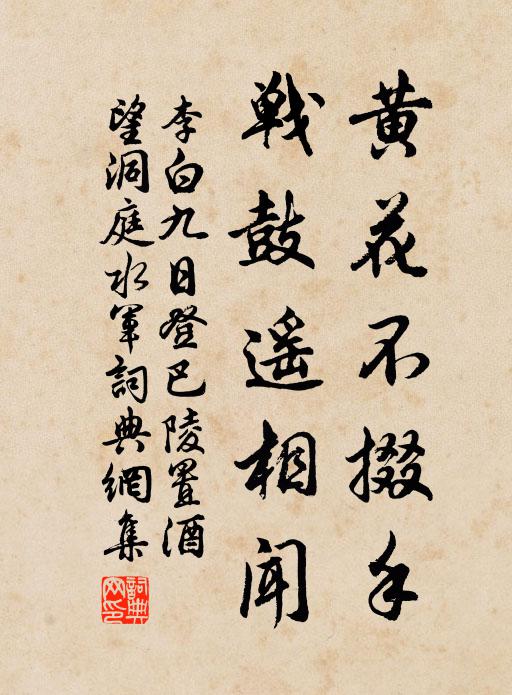 黄花不掇手
戦鼓遥相闻
李白九日登巴陵置酒
望洞庭水軍詞典網集
詞典
网印